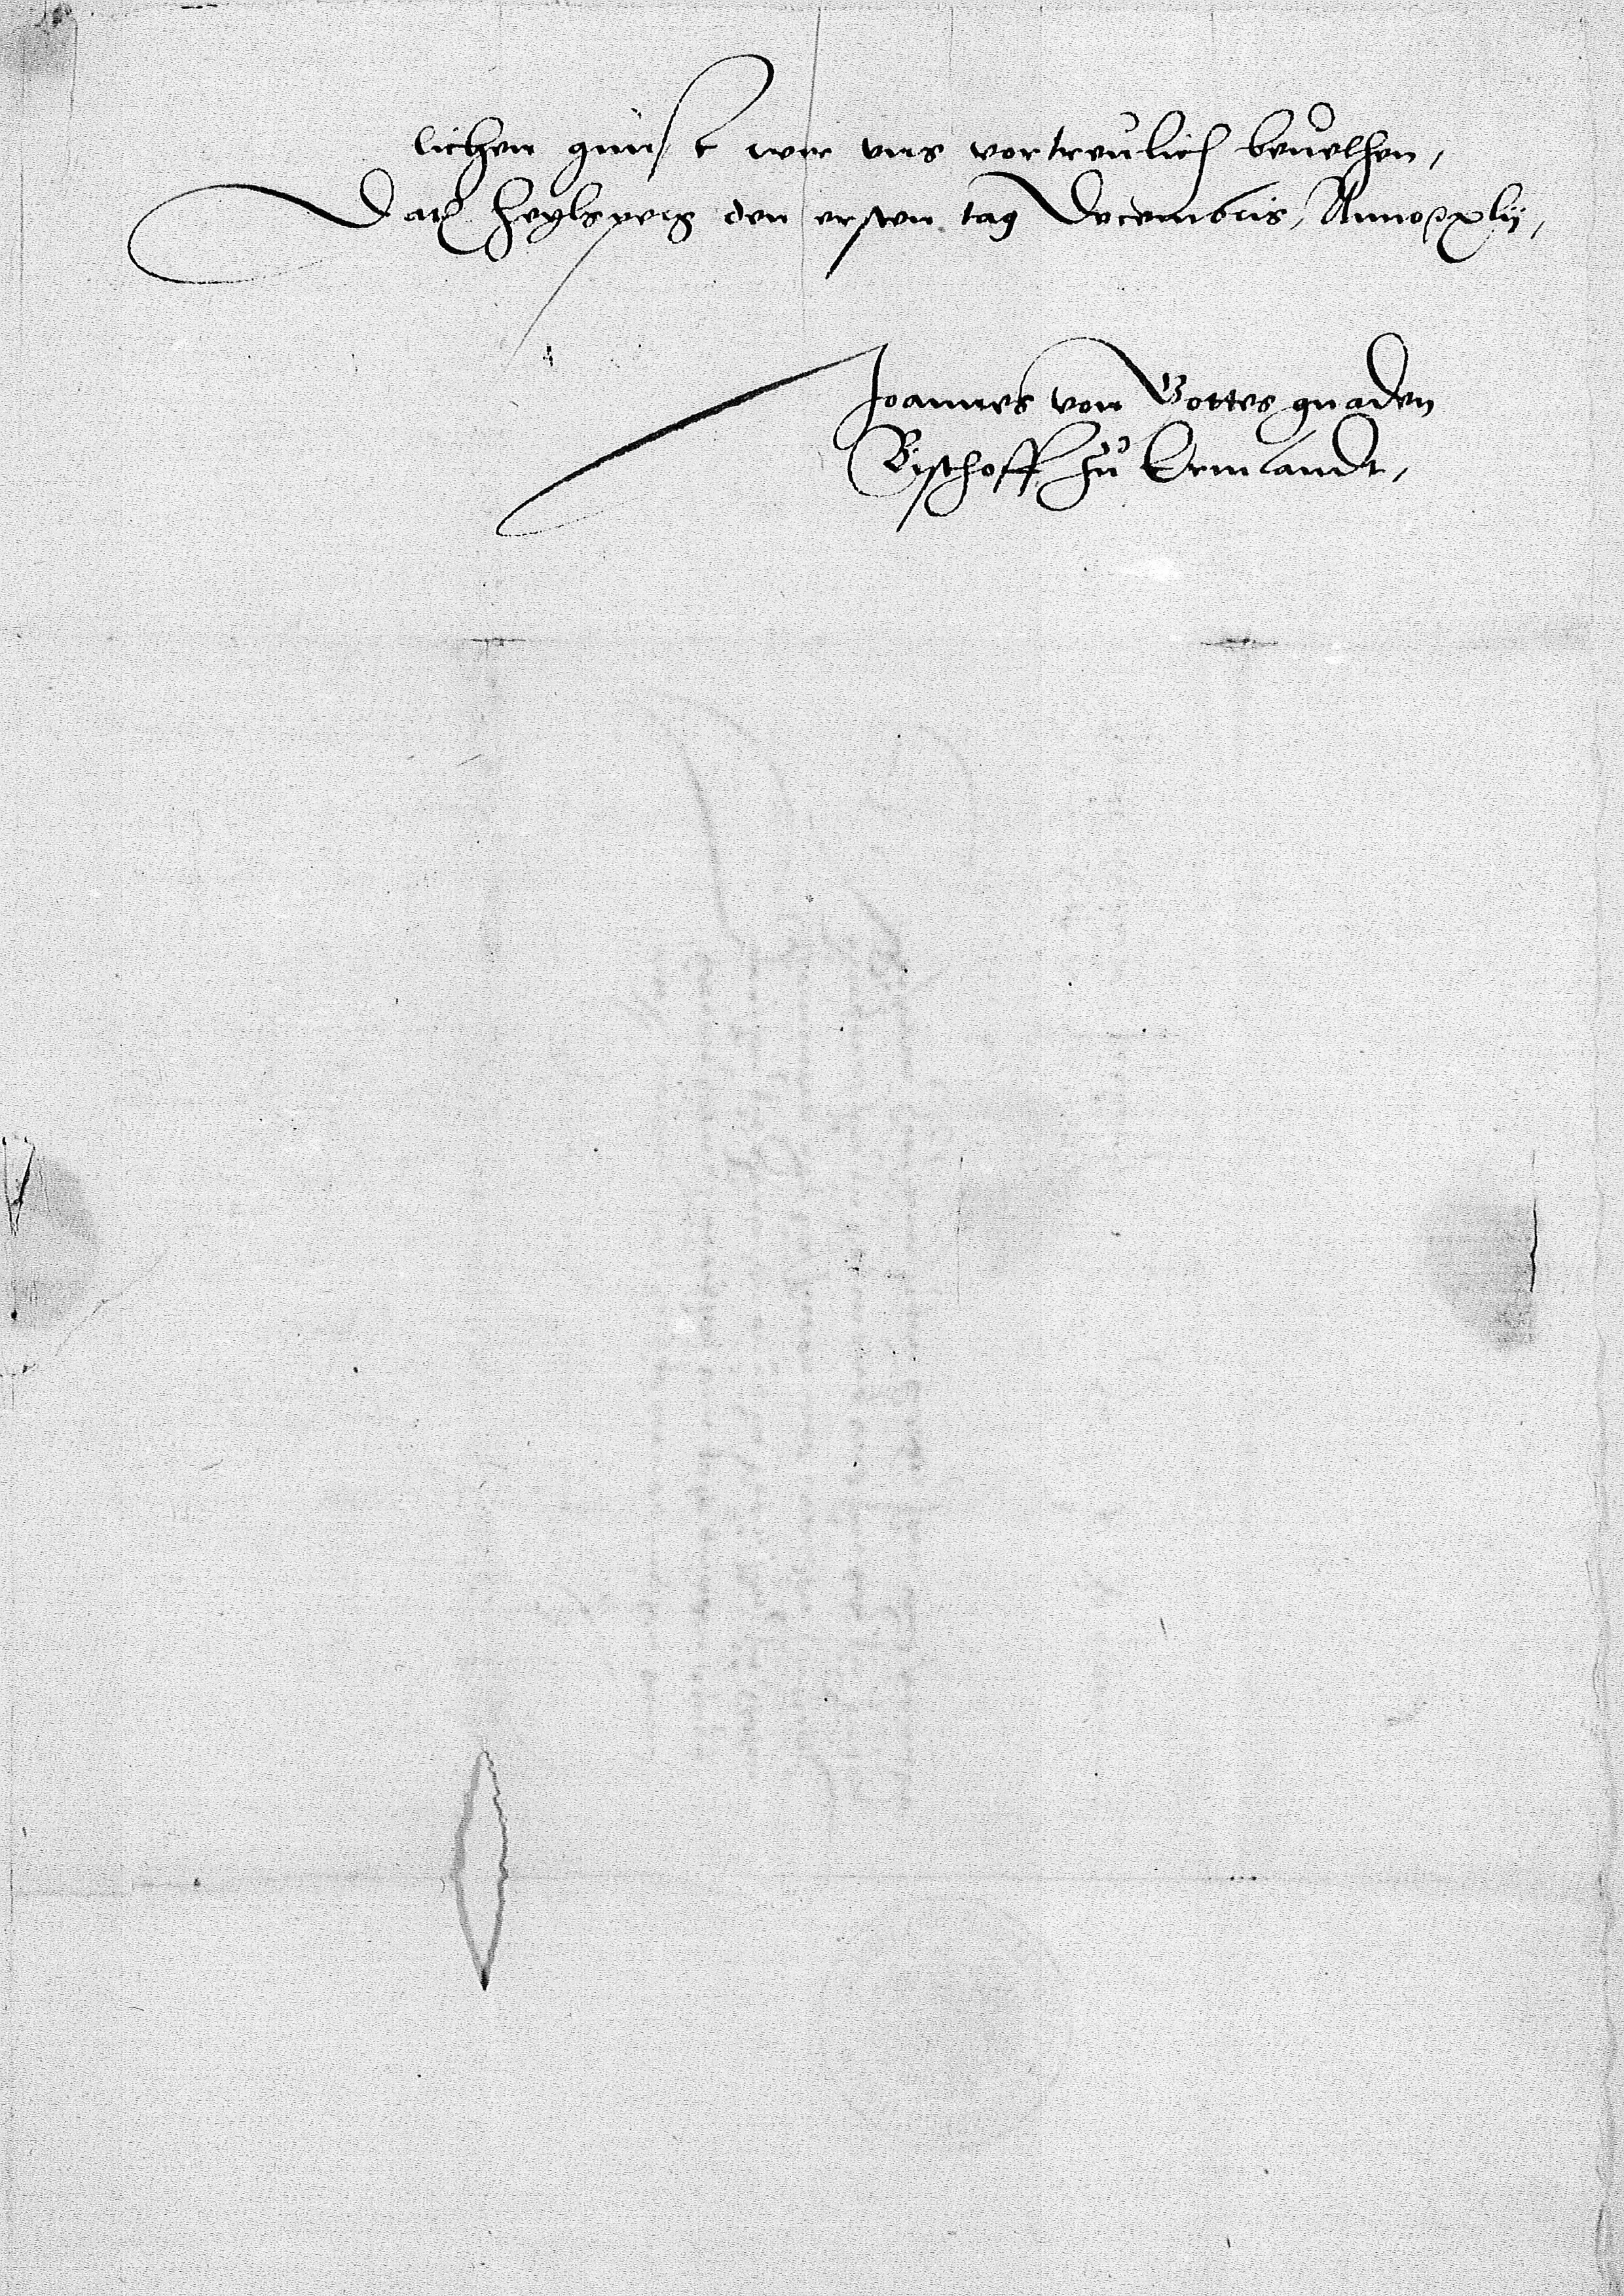 lichen gunst wir uns vortreulich bevelhen,
Dat Heylsperg den ersten tag Decembris, Anno xlij,
Joannes von Gottes gnaden
Bischoff zu Ermlandt,